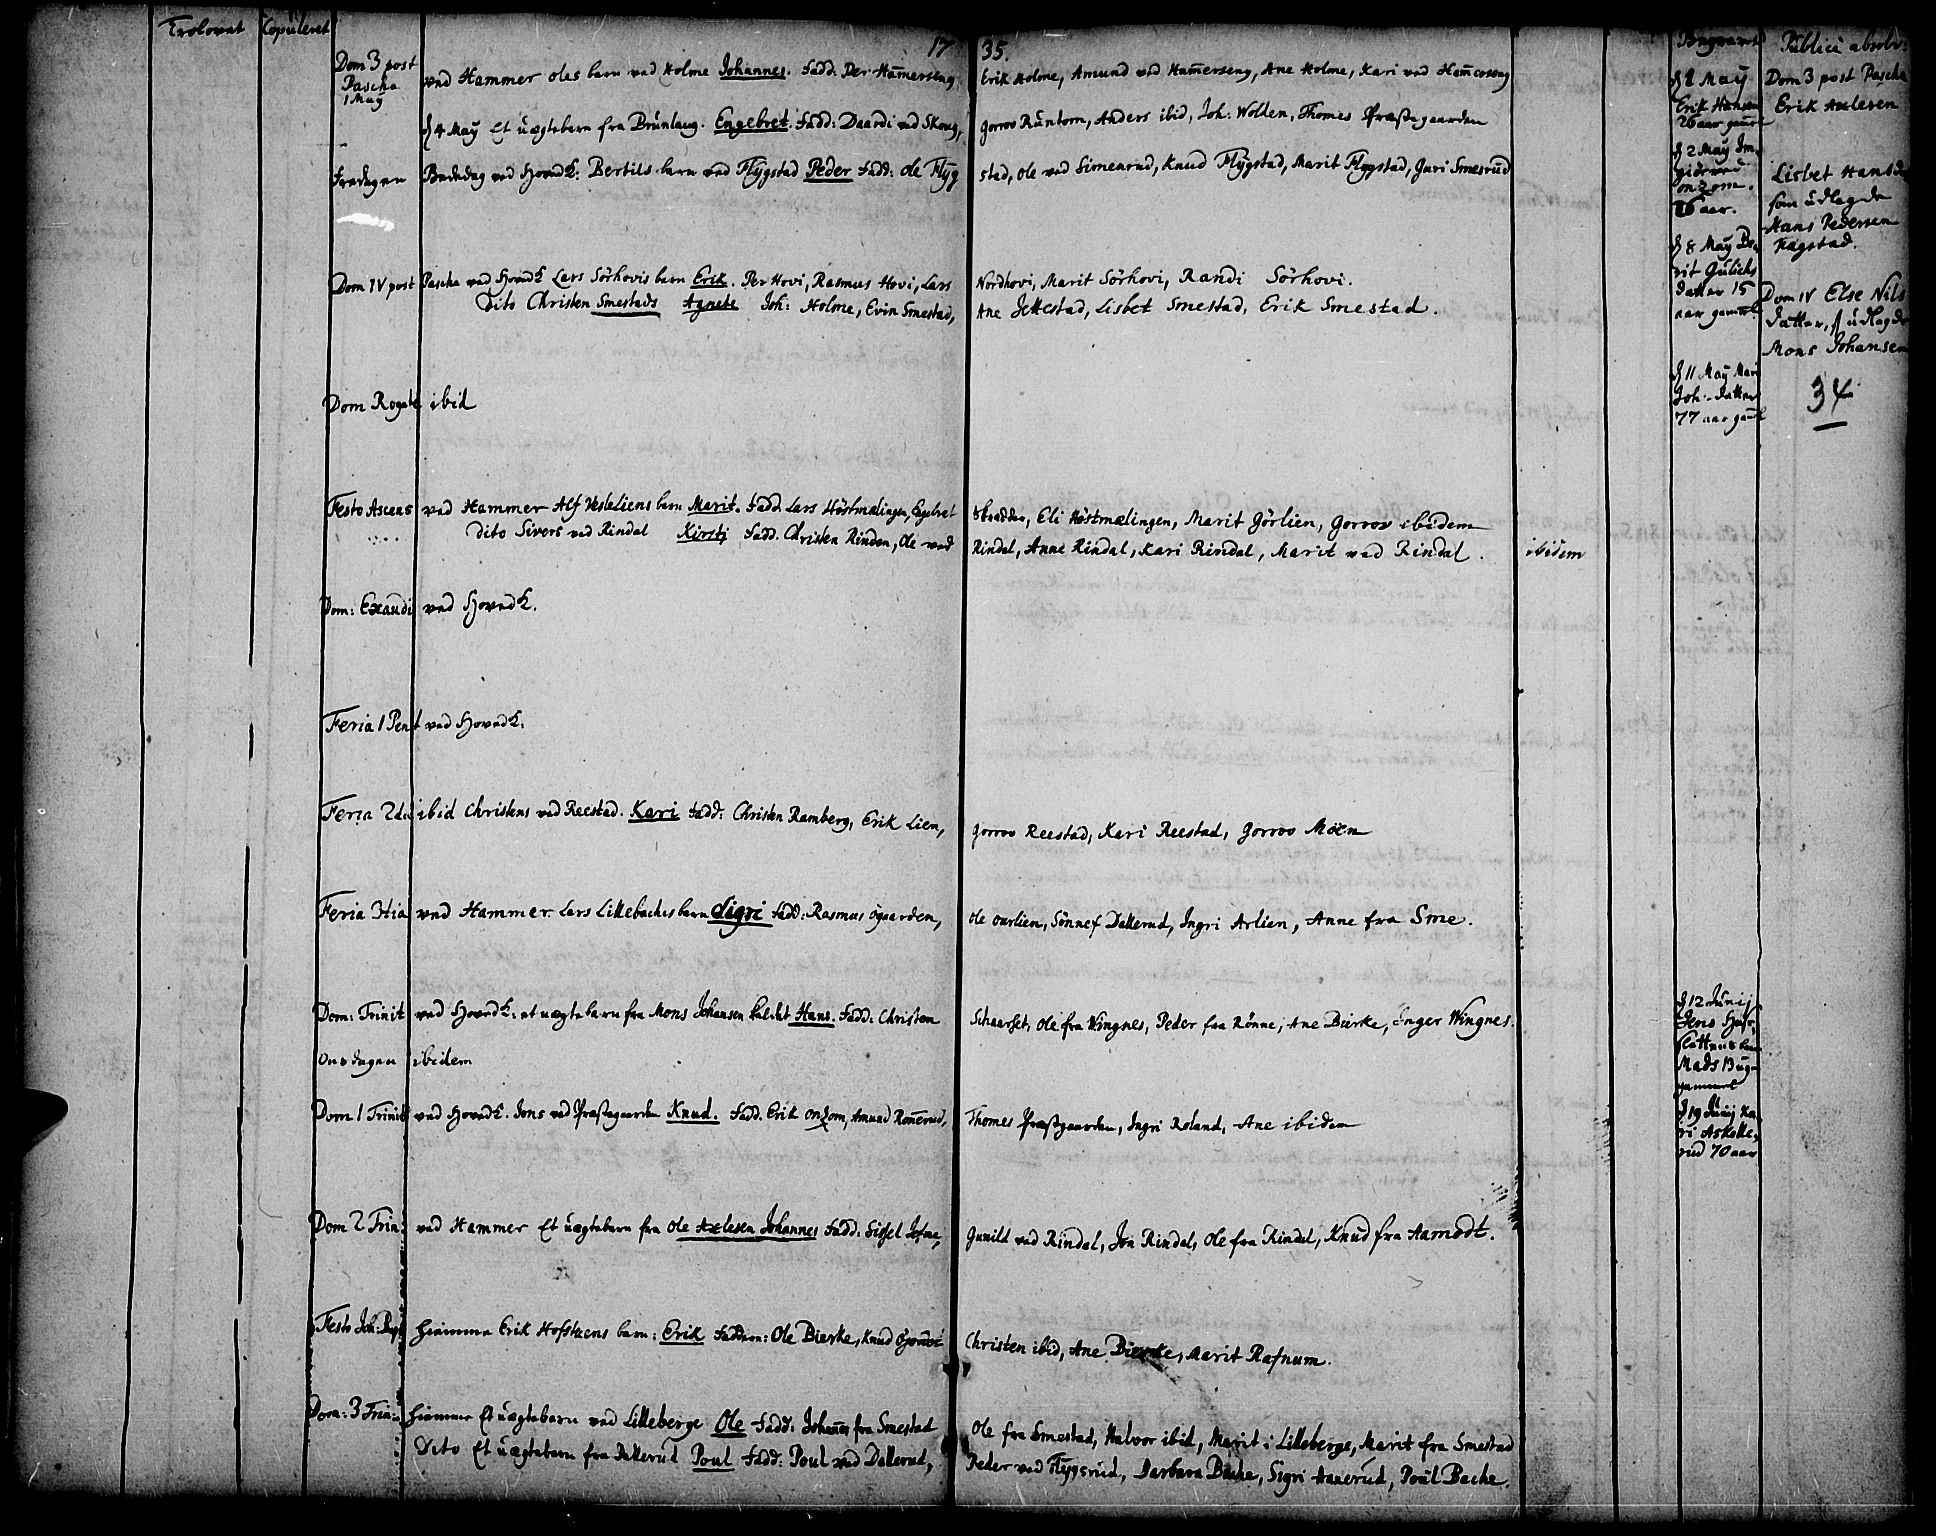 Trolovet Copuleret 17 35. Publici absolv:
Dom 3 post Pascha 1 Maÿ ved Hammer oles barn ved Holme Johannes. Fadd. Per Hamerseng, Erik Holme, Amund ved Hamerseng, Ane Holme, Kari ved Hamerseng
4 Maÿ Et uægtebarn fra Brunlaug. Engebret. Fadd: Daardi ved Skoug, gorrov Runtom, Anders ibid, Joh: Wolden, Thomes Præstegaarden
Fredagen Bededag ved Hovedk: Bertils barn ved Flÿgstad Peder Fadd: ole Flÿg stad, ole ved Simenrud, Knud Flÿgstad, Marit Flÿgstad, Juri Smesrud
Dom IV post Pascha ved Hovedk Lars Sörhovis barn Erik. Per Hovi, Rasmus Hovi, Lars Nordhovi, Marit Sörhovi, Randi Sörhovi.
Dito Christen Smestads Agnete Joh: Holme, Evin Smestad, Ane Jettestad, Lisbet Smestad, Erik Smestad.
Dom Rogate ibid
Festo Ascens ved Hammer Alf Vesleliens barn Marit. Fadd. Lars Höstmælingen, Engebret Skredder, Eli Höstmælingen, Marit Görlien, Gorrov ibidem
Dito Sivers ved Rindal Kirsti Fadd. Christen Rinden, Ole ved Rindal, Anne Rindal, Kari Rindal, Marit ved Rindal. ibidem
Dom: Exaudi ved Hovedk.
Feria 1 Pent ved Hovedk.
Feria 2da ibid Christens ved Reestad. Kari Fadd: Christen Ramberg, Erik Lien, gorrov Reestad, Kari Reestad, Gorrov Möen
Feria 3tia ved Hammer Lars Lillebaches barn Sigri Fadd: Rasmus ögaarden, ole ourlien, Sönnef Dallerud, Ingri Arlien, Anne fra Sme.
Dom: Trinit ved Hovedk: et uægtebarn fra Mons Johansen kaldet Hans. Fadd: Christen Schaarset, ole fra Wingnes, Peder fra Rönne, Ane Bierke, Inger Wingnes.
Onsdagen ibidem
Dom 1 Trinit ved Hovedk. Jons ved Præstegaarden Knud. Fadd. Erik onzom, Amund Romerud, Thomes Præstgaarden, Ingri Roland, Ane ibidem
Dom 2 Trin: ved Hammer Et uægtebarn fra Ole Axlesen Johannes Fadd: Sissel Jofne, Gunild ved Rindal, Jon Rindal, Ole fra Rindal, Knud fra Aamodt.
Festo Joh: Bapt hiemme Erik Hofstuens barn: Erik Faddern: Ole Bierke, Knud Christen ibid, Ane Bierke, Marit Rafnum.
Dom: 3 Trin: hiemme Et uægtebarn ved Lilleberge Ole Fadd: Johannes fra Smestad Ole fra Smestad, Halvor ibid, Marit i Lilleberge, Marit fra Smestad
Dito Et uægtebarn fra Dallerud Poul Fadd: Poul ved Dallerud, Peder ved Flÿgsrud, Barbara Bache, Sigri Haaerud, Poul Bache.
1 Maÿ
Erik Hansen
26 aar gaml
2 Maÿ
onzom.
26 aar.
8 Maÿ
rit Gulichs
datter 15
aar gamel
11 Maÿ Mari
Joh: datter
77 aar gaml
12 Junij
Jens
Mads 13 ug
gammel
19 Junij Ka
ri Askelle
rud 70 aar
Dom 3 post Pascha
Erik Axlesen
Lisbet Hansd
som udlagde
Hans Pedersen
Kagstad.
Dom IV Else Nils
datter, udlagde
Mons Johansen
34